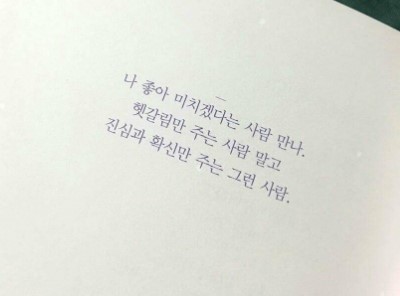 나 좋아 미치겠다는 사람 만나.
헷갈림만 주는 사람 말고
진심과 확신만 주는 그런 사람.